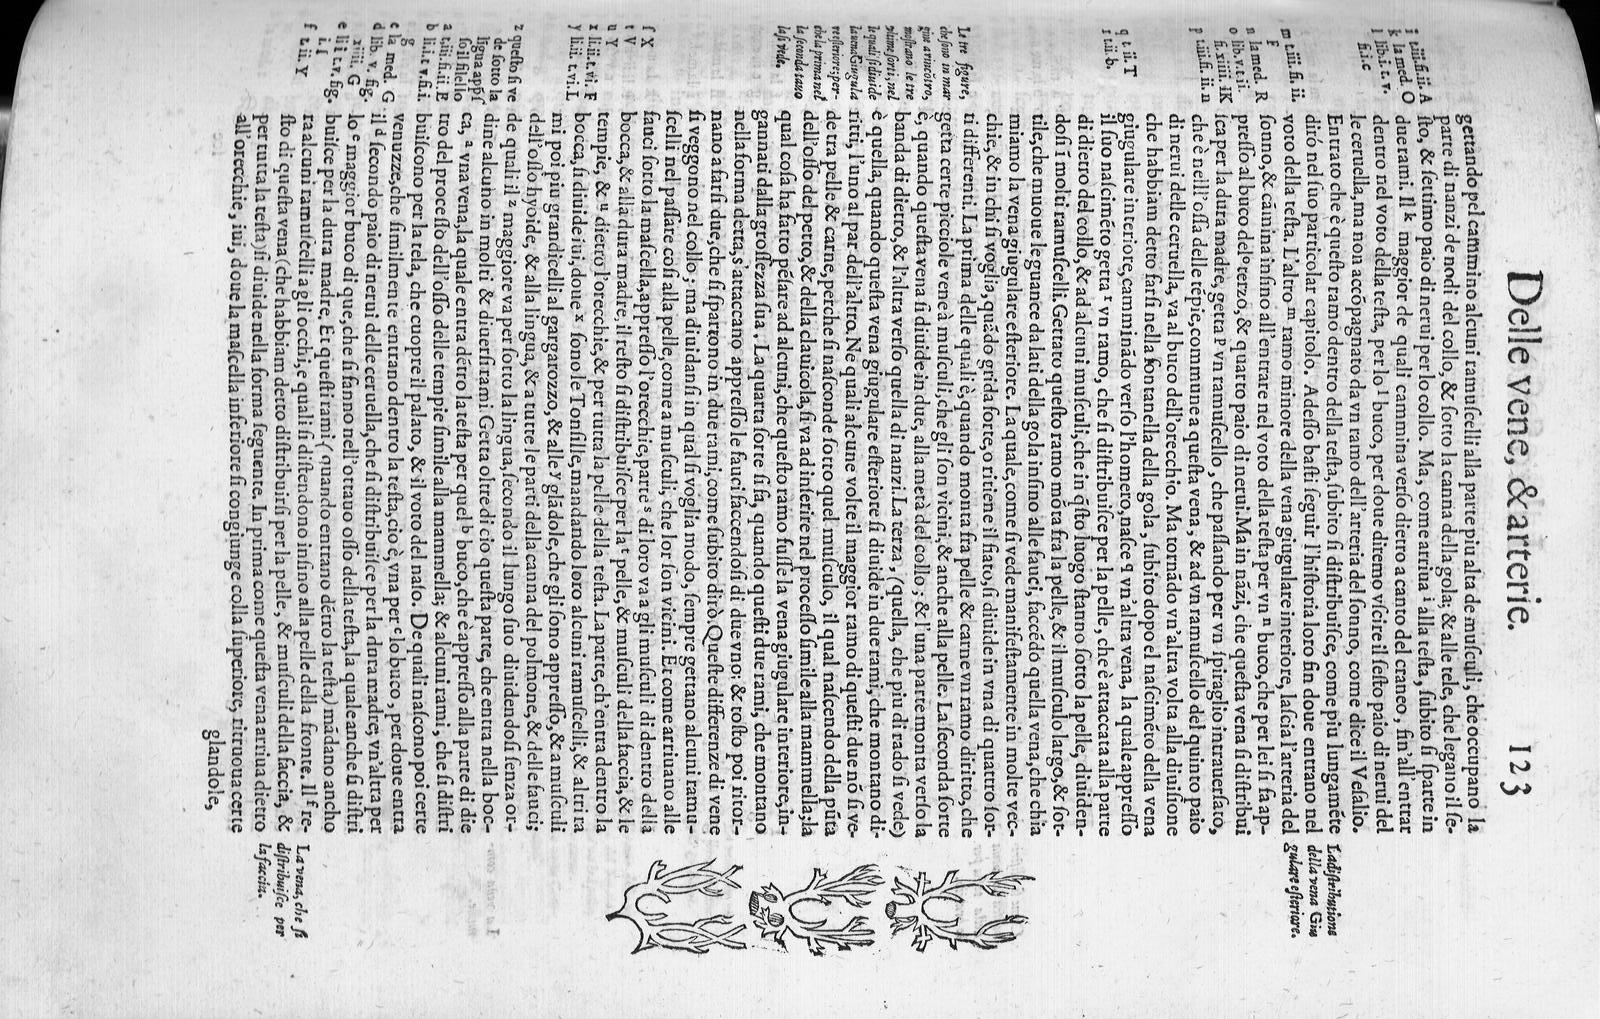 Delle vene, & arterie. 123
gettando pel cammino alcuni ramuſcelli alla parte piu alta de muſculi, che occupano la
parte di nanzi de nodi del collo, & ſotto la canna della gola; & alle tele, che legano il ſe-
ſto, & ſettimo paio di nerui per lo collo. Ma, come arriua i alla teſta, ſubito ſi ſparte in
due rami. Il k maggior de quali cammina verſo dietro a canto del craneo, fin'all'entrar
dentro nel voto della teſta, per lo l buco, per doue diremo vſcire il ſeſto paio di nerui del
le ceruella, ma non accōpagnato da vn ramo dell'arteria del ſonno, come dice il Veſalio.
Entrato che è queſto ramo dentro della teſta, ſubito ſi diſtribuiſce, come piu lungamēte
dirò nel ſuo particolar capitolo. Adeſſo baſti ſeguir l'hiſtoria loro fin doue entrano nel
voto della teſta. L'altro m ramo minore della vena giugulare interiore, laſcia l'arteria del
ſonno, & cāmina inſino all'entrare nel voto della teſta per vn n buco, che per lei ſi fa ap-
preſſo al buco del o terzo, & quarto paio di nerui. Ma in nāzi, che queſta vena ſi diſtribui
ſca per la dura madre, getta p vn ramuſcello, che paſſando per vn ſpiraglio intrauerſato,
che è nell'oſſa delle tēpie, commune a queſta vena, & ad vn ramuſcello del quinto paio
di nerui delle ceruella, va al buco dell'orecchio. Ma tornādo vn'altra volta alla diuiſione
che habbiam detto farſi nella fontanella della gola, ſubito dopo el naſcimēto della vena
giugulare interiore, camminādo verſo l'homero, naſce q vn'altra vena, la quale appreſſo
il ſuo naſcimēto getta r vn ramo, che ſi diſtribuiſce per la pelle, che è attaccata alla parte
di dietro del collo, & ad alcuni muſculi, che in q̄ſto luogo ſtanno ſotto la pelle, diuiden-
doſi ī molti ramuſcelli. Gettato queſto ramo mōta fra la pelle, & il muſculo largo, & ſot-
tile, che muoue le guance da lati della gola inſino alle fauci, faccēdo quella vena, che chia
miamo la vena giugulare eſteriore. La quale, come ſi vede manifeſtamente in molte vec-
chie, & in chi ſi voglia, quādo grida forte, o ritiene il fiato, ſi diuide in vna di quattro ſor-
ti differenti. La prima delle quali è, quando monta fra pelle & carne vn ramo diritto, che
getta certe picciole vene à muſculi, che gli ſon vicini; & anche alla pelle. La ſeconda ſorte
è, quando queſta vena ſi diuide in due, alla metà del collo; & l'una parte monta verſo la
banda di dietro, & l'altra verſo quella di nanzi. La terza, (quella, che piu di rado ſi vede)
è quella, quando queſta vena giugulare eſteriore ſi diuide in due rami, che montano di-
ritti, l'uno al par dell'altro. Ne quali alcune volte il maggior ramo di queſti due nō ſi ve-
de tra pelle & carne, perche ſi naſconde ſotto quel muſculo, il qual naſcendo della pūta
dell'oſſo del petto, & della clauicola, ſi va ad inſerire nel proceſſo ſimile alla mammella; la
qual coſa ha fatto pēſare ad alcuni, che queſto ramo fuſſe la vena giugulare interiore, in-
gannati dalla groſſezza ſua. La quarta ſorte ſi fa, quando queſti due rami, che montano
nella forma detta, s'attaccano appreſſo le fauci faccendoſi di due vno: & toſto poi ritor-
nano a farſi due, che ſi ſpartono in due rami, come ſubito dirò. Queſte differenze di vene
ſi veggono nel collo; ma diuidanſi in qual ſi voglia modo, ſempre gettano alcuni ramu-
ſcelli nel paſſare coſi alla pelle, come a muſculi, che lor ſon vicini. Et come arriuano alle
fauci ſotto la maſcella, appreſſo l'orecchie, parte s di loro va a gli muſculi di dentro della
bocca, & alla dura madre, il reſto ſi diſtribuiſce per la t pelle, & muſculi della faccia, & le
tempie, & u dietro l'orecchie, & per tutta la pelle della teſta. La parte, ch'entra dentro la
bocca, ſi diuide iui, doue x ſono le Tonſille, mandando loro alcuni ramuſcelli, & altri ra
mi poi piu grandicelli al gargarozzo, & alle y glādole, che gli ſono appreſſo, & a muſculi
dell'oſſo hyoide, & alla lingua, & a tutte le parti della canna del polmone, & delle fauci;
de quali il z maggiore va per ſotto la lingua, ſecondo il lungo ſuo diuidendoſi ſenza or-
dine alcuno in molti & diuerſi rami. Getta oltre di cio queſta parte, che entra nella boc-
ca, a vna vena, la quale entra dētro la teſta per quel b buco, che è appreſſo alla parte di die
tro del proceſſo dell'oſſo delle tempie ſimile alla mammella; & alcuni rami, che ſi diſtri
buiſcono per la tela, che cuopre il palato, & il voto del naſo. De quali naſcono poi certe
venuzze, che ſimilmente entrano dentro la teſta, ciò è, vna per c lo buco, per doue entra
il d ſecondo paio di nerui delle ceruella, che ſi diſtribuiſce per la dura madre; vn'altra per
lo e maggior buco di que, che ſi fanno nell'ottauo oſſo della teſta, la quale anche ſi diſtri
buiſce per la dura madre. Et queſti rami (quando entrano dētro la teſta) mādano ancho
ra alcuni ramuſcelli a gli occhi, e quali ſi diſtendono inſino alla pelle della fronte. Il f re-
ſto di queſta vena (che habbiam detto diſtribuirſi per la pelle, & muſculi della faccia, &
per tutta la teſta) ſi diuide nella forma ſeguente. In prima come queſta vena arriua dietro
all'orecchie, iui, doue la maſcella inferiore ſi congiunge colla ſuperiore, ritruoua certe
glandole,
i t.iiii.fi.ii. A
k la med. O
l lib.i.t.v.
fi.ii.c
m t.iiii.fi.ii.
F
n la med. R
o lib.v.t.ii.
fi.xiiii. IK
p t.iii.fi.ii.n
q t.ii.T
r t.ii.b.
Le tre figure,
che ſono in mar
gine a rincōtro,
moſtrano le tre
piu me forti; nel
le quali ſi diuide
la vena Giugula
re eſteriore; per-
che la prima nel
la ſeconda tauo
la ſi vede.
ſ X
t V
u Y
x li.ii.t.vi. F
y li.ii.t.vi.L
z queſto ſi ve
de ſotto la
ligua appſ
ſo il filello
a t.iii.fi.ii.E
b li.i.t.v.fi.i.
g
c la med. G
d lib.v.fig.
xiiii. G
e li i t.v. fig.
i. ſ
f t.ii.Y
La diſtributione
della vena Giu
gulare eſteriore.
La vena, che ſi
diſtribuiſce per
la faccia.